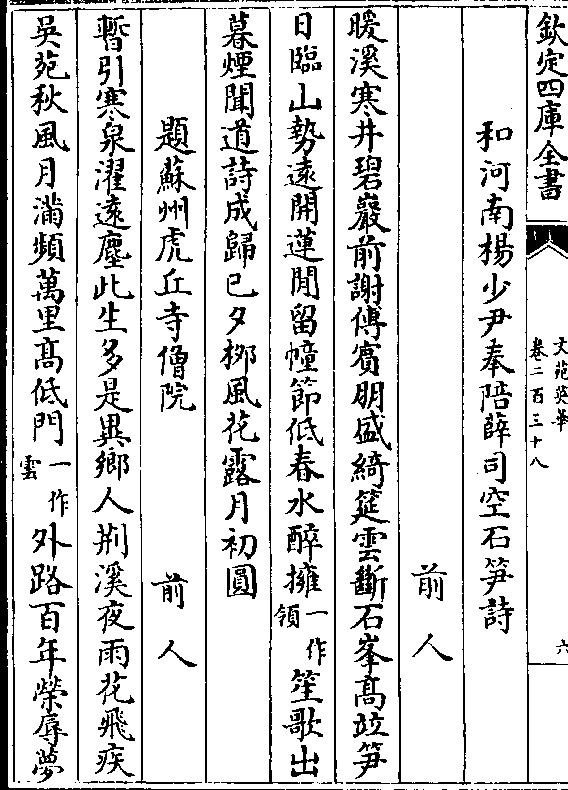 欽定四庫全書
文苑英華
卷二百三十八
六
和河南楊少尹奉陪薛司空石笋詩
前人
暖溪寒井碧巖前謝傅賓朋盛綺筵雲斷石峯髙竝笋
日臨山勢遠開蓮閒留幢節低春水醉擁一作領笙歌出
暮煙聞道詩成歸已夕栁風花露月初圓
題蘇州虎丘寺僧院
前人
暫引寒泉濯遠塵此生多是異鄉人荆溪夜雨花飛疾
吳苑秋風月滿頻萬里髙低門一作雲外路百年榮辱夢